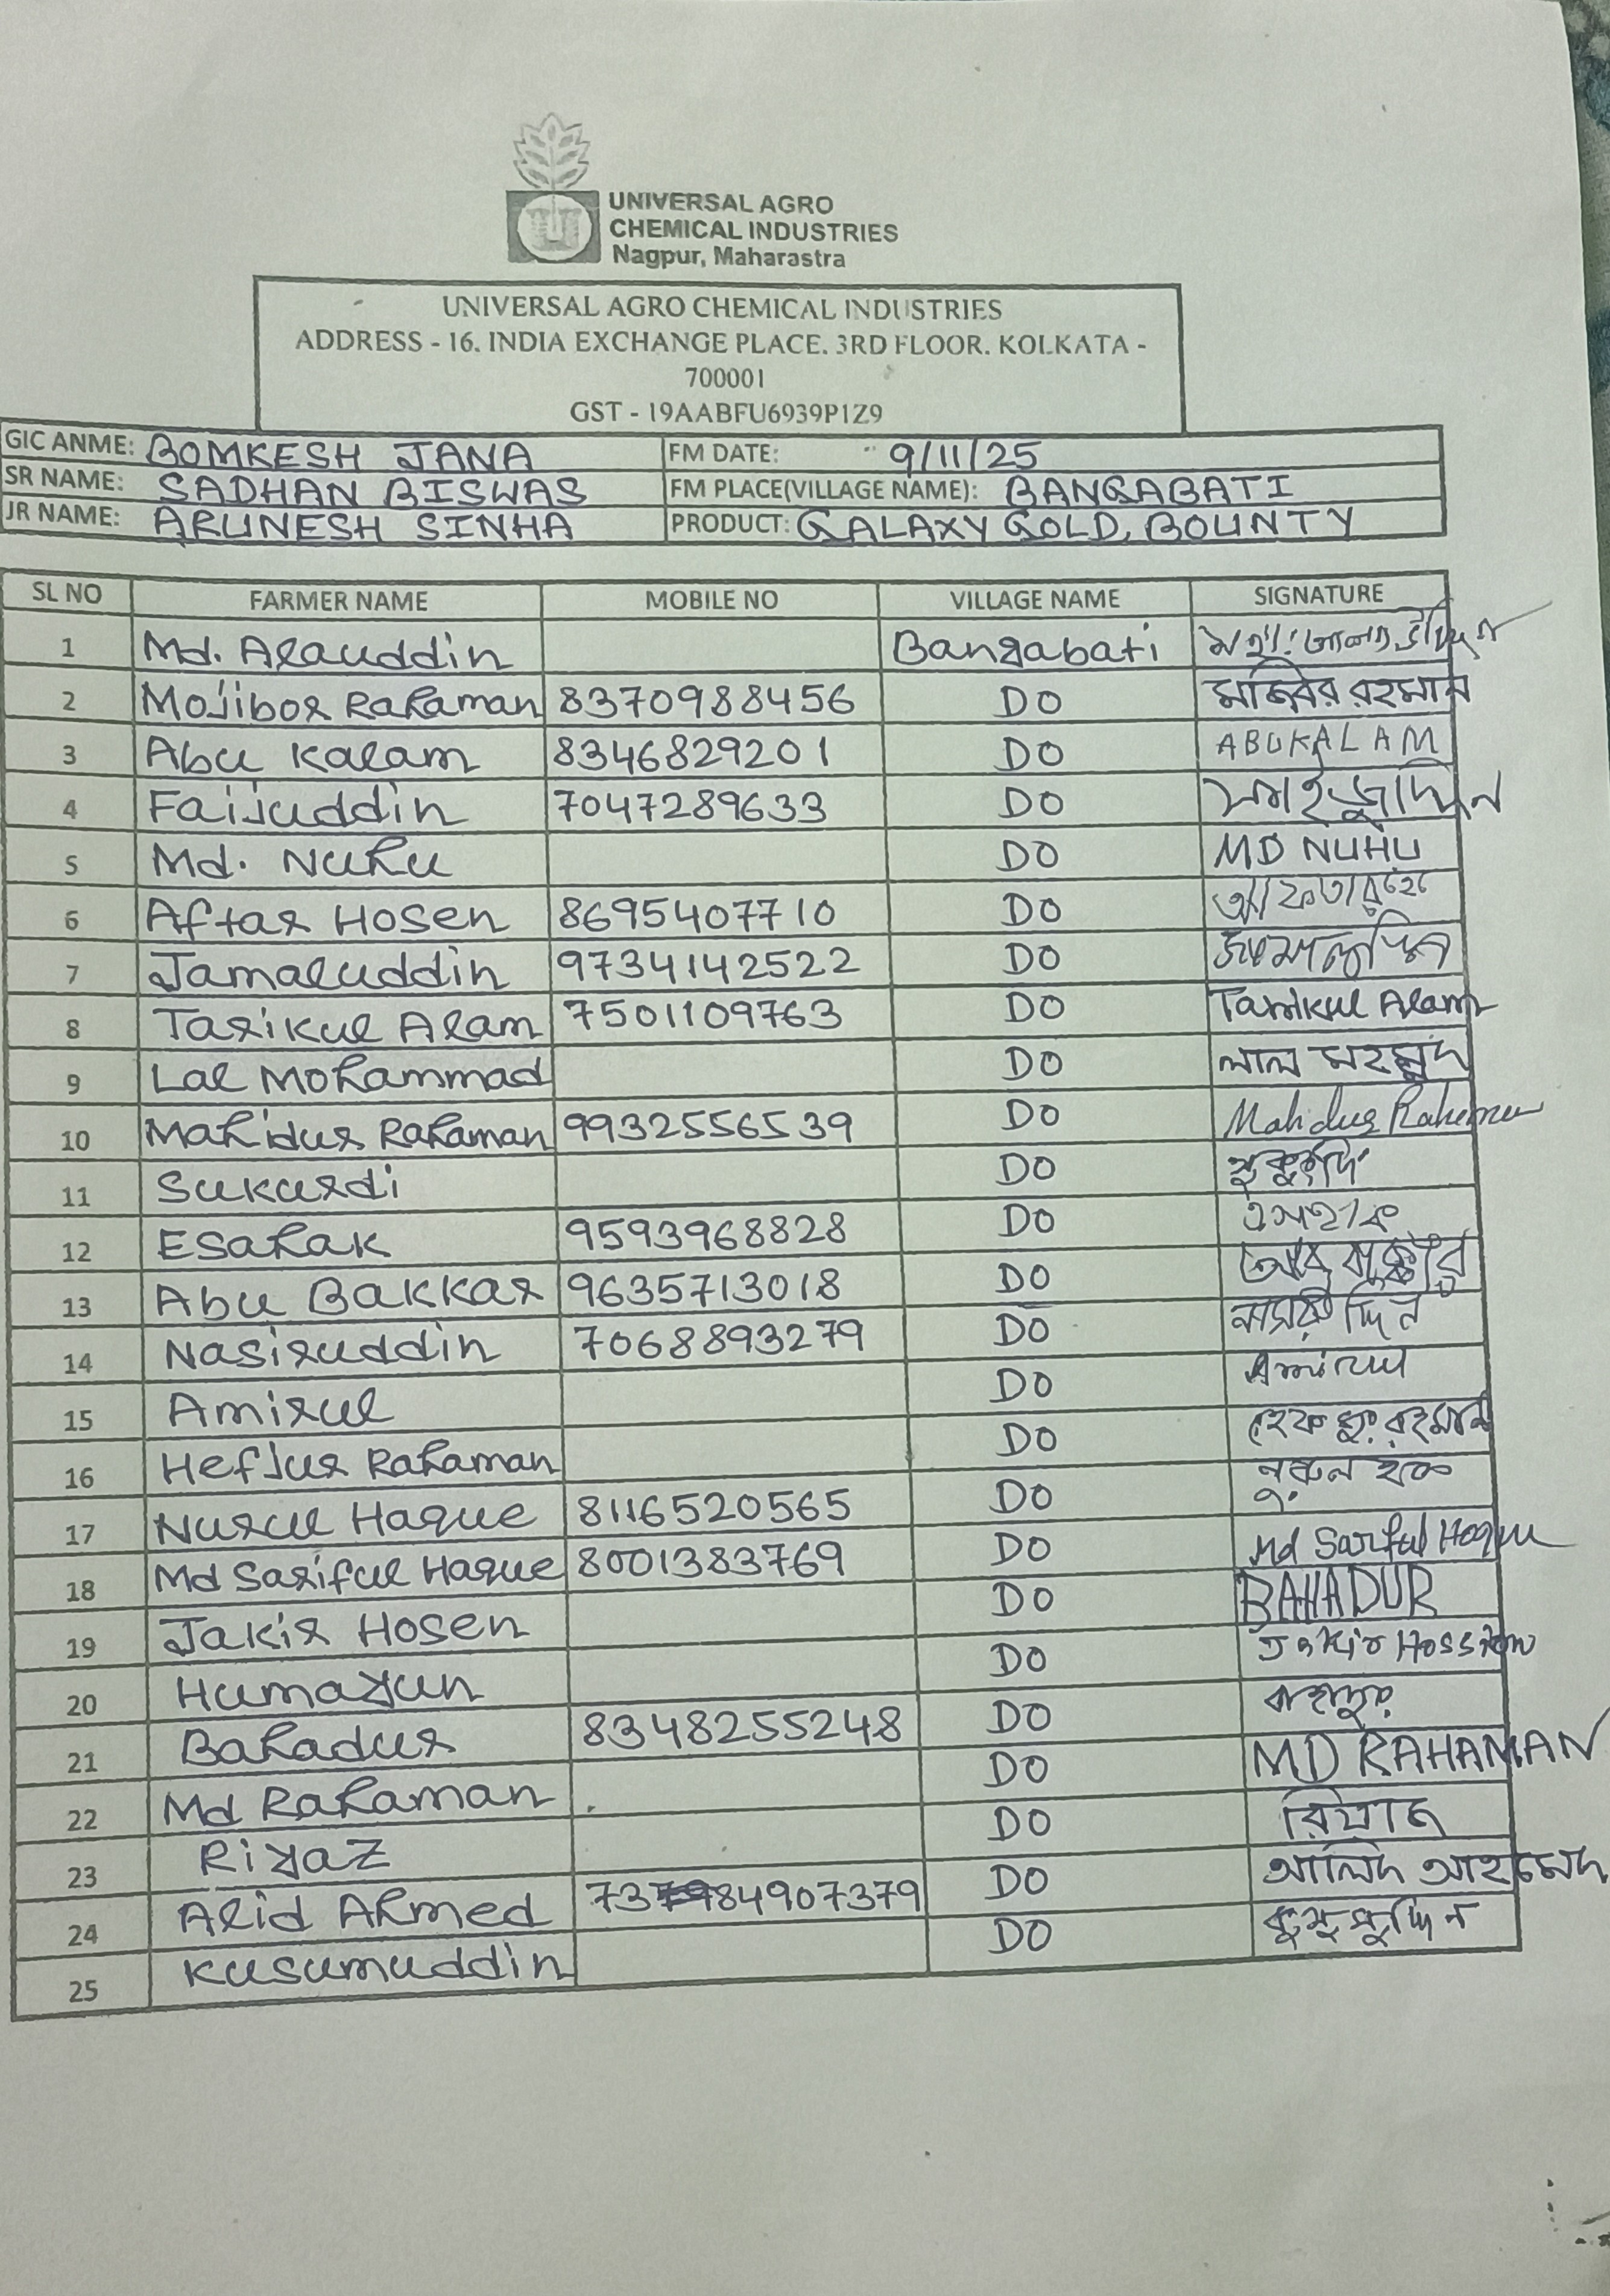 UNIVERSAL AGRO
CHEMICAL INDUSTRIES
Nagpur, Maharastra
UNIVERSAL AGRO CHEMICAL INDUSTRIES
ADDRESS - 16, INDIA EXCHANGE PLACE, 3RD FLOOR, KOLKATA -
700001
GST - 19AABFU6939P1Z9
GIC ANME: BOMKESH JANA FM DATE: 9/11/25
SR NAME: SADHAN BISWAS FM PLACE(VILLAGE NAME): BANGABATI
JR NAME: ARUNESH SINHA PRODUCT: GALAXY GOLD, BOUNTY
SL NO FARMER NAME MOBILE NO VILLAGE NAME SIGNATURE
1 Md. Alauddin Bangabati
2 Mojibor Rahaman 8370988456 DO মজিবর রহমান
3 Abu Kalam 8346829201 DO ABUKALAM
4 Faijuddin 7047289633 DO
5 Md. Nuhu DO MD NUHU
6 Aftar Hosen 8695407710 DO
7 Jamaluddin 9734142522 DO
8 Tarikul Alam 7501109763 DO Tarikul Alam
9 Lal Mohammad DO লাল মহম্মদ
10 Mahidur Rahaman 9932556539 DO Mahidur
11 Sukurdi DO
12 Esahak 9593968828 DO এসহাক
13 Abu Bakkar 9635713018 DO
14 Nasiruddin 7068893279 DO
15 Amirul DO Amirul
16 Hefjur Rahaman DO রহমান
17 Nurul Haque 8116520565 DO নুরুল হক
18 Md Sariful Haque 8001383769 DO Md Sariful Haque
19 Jakir Hosen DO BAHADUR
20 Humayun DO Jakir Hossion
21 Bahadur 8348255248 DO বাহাদুর
22 Md Rahaman DO MD RAHAMAN
23 Riyaz DO রিয়াজ
24 Alid Ahmed DO আলিদ আহমেদ
25 Kusumuddin DO কুসুমুদ্দিন